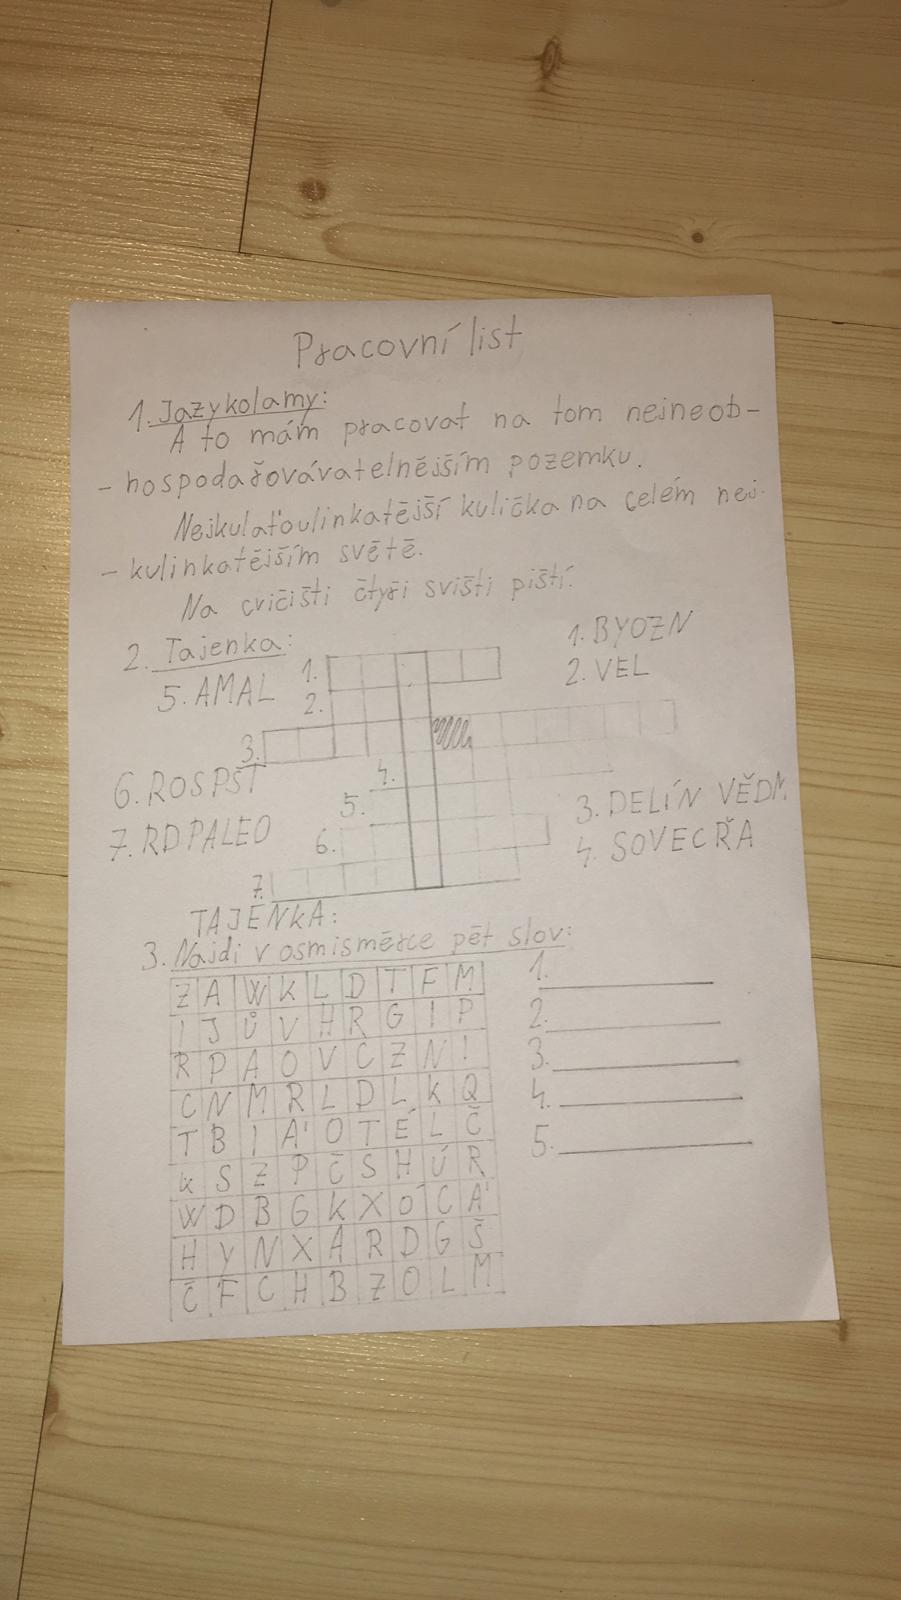 Pracovní list
1. Jazykolamy:
A to mám pracovat na tom nejneob-
- hospodařovávatelnějším pozemku.
Nejkulaťoulinkatější kulička na celém nej-
- kulinkatějším světě.
Na cvičišti čtyři svišti piští.
2. Tajenka:
1. BYOZN
5. AMAL
1.
2. VEL
2.
3.
4.
6. ROSPŠT
5.
3. DELÍN VĚDM
7. RDPALEO
6.
4. SOVECŘA
7.
TAJENKA:
3. Najdi v osmisměrce pět slov:
Z A W K L D T F M
I J Ů V H R G I P
R P A O V C Z N !
C N M R L D L K Q
T B I Á O T É L Č
K S Z P Č S H Ú R
W D B G K X Ó C Á
H Y N X A R D G Š
Č F C H B Z O L M
1.
2.
3.
4.
5.